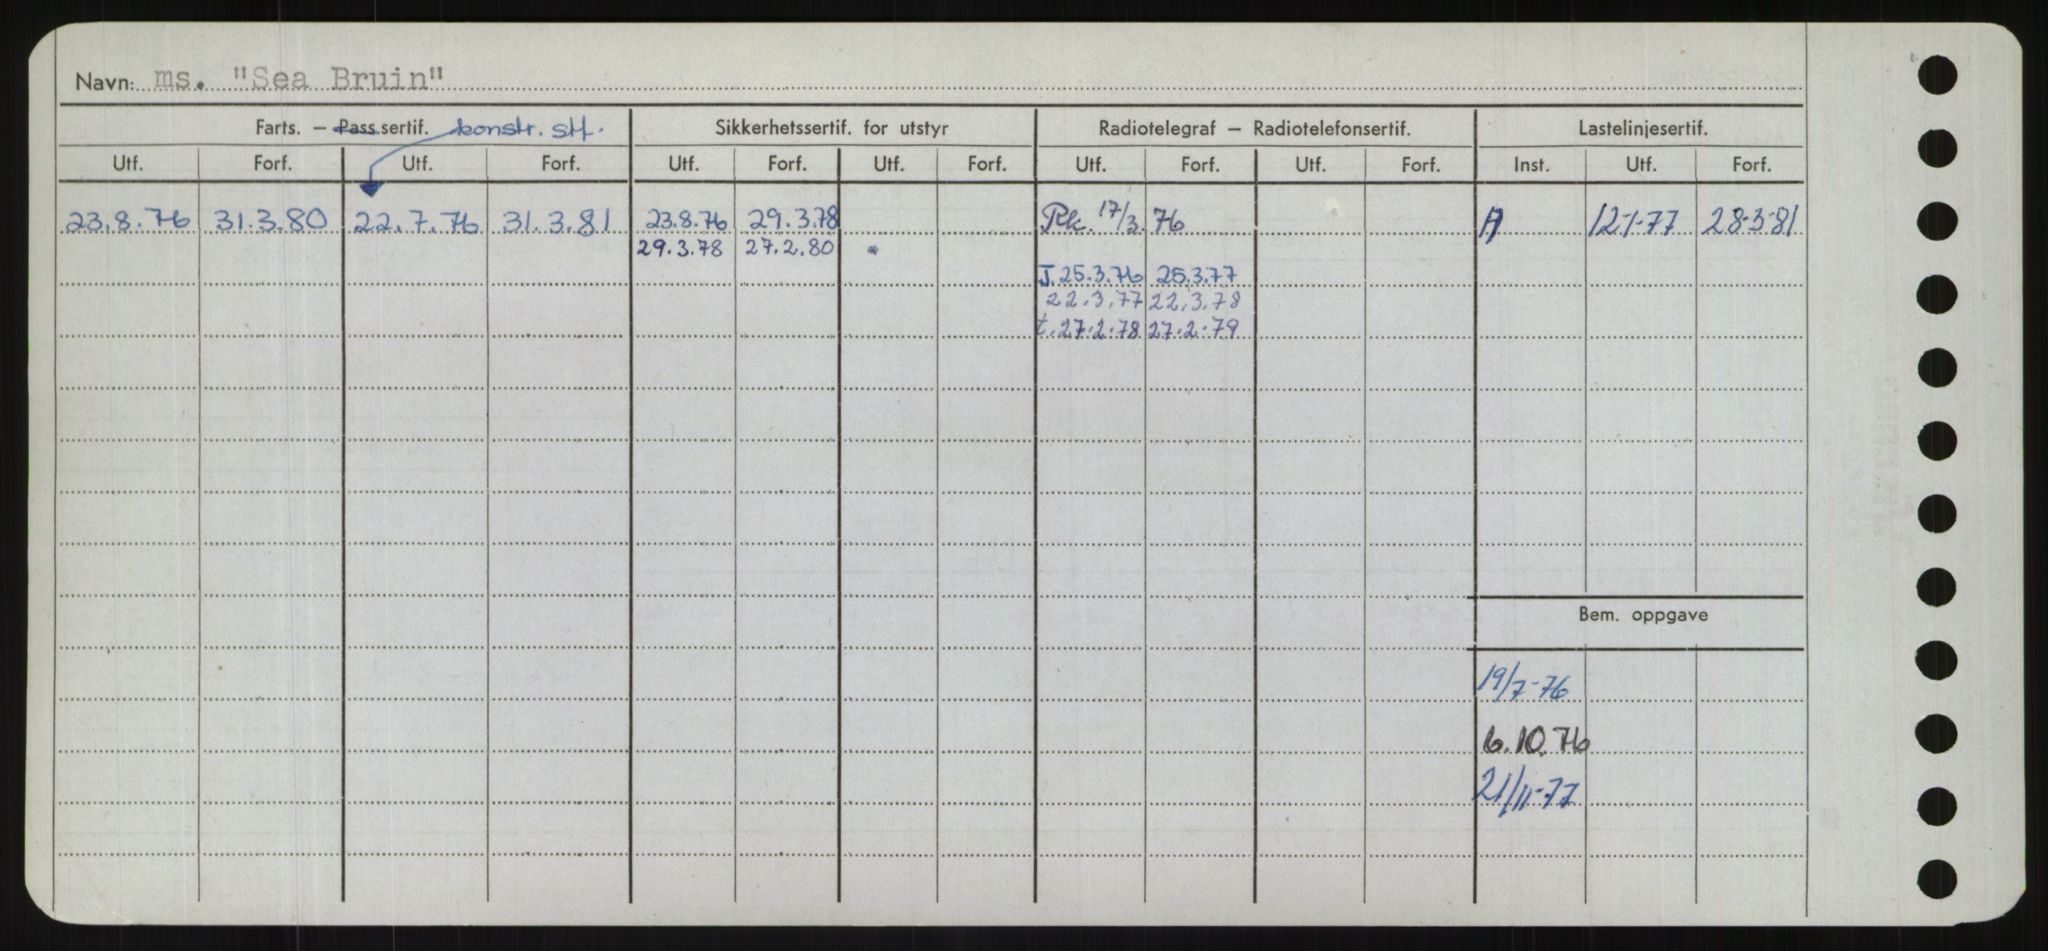 Navn: ms. "Sea Bruin"
Farts. – Pass.sertif. konstr. stf. Sikkerhetssertif. for utstyr Radiotelegraf – Radiotelefonsertif. Lastelinjesertif.
Utf. Forf. Utf. Forf. Utf. Forf. Utf. Forf. Utf. Forf. Utf. Forf. Inst. Utf. Forf.
23.8.76 31.3.80 22.7.76 31.3.81 23.8.76 29.3.78 Rk. 17/3.76 A 12-1-77 28-3-81
29.3.78 27.2.80
J. 25.3.76 25.3.77
22.3.77 22.3.78
t. 27.2.78 27.2.79
Bem. oppgave
19/7-76
6.10.76
21/11-77